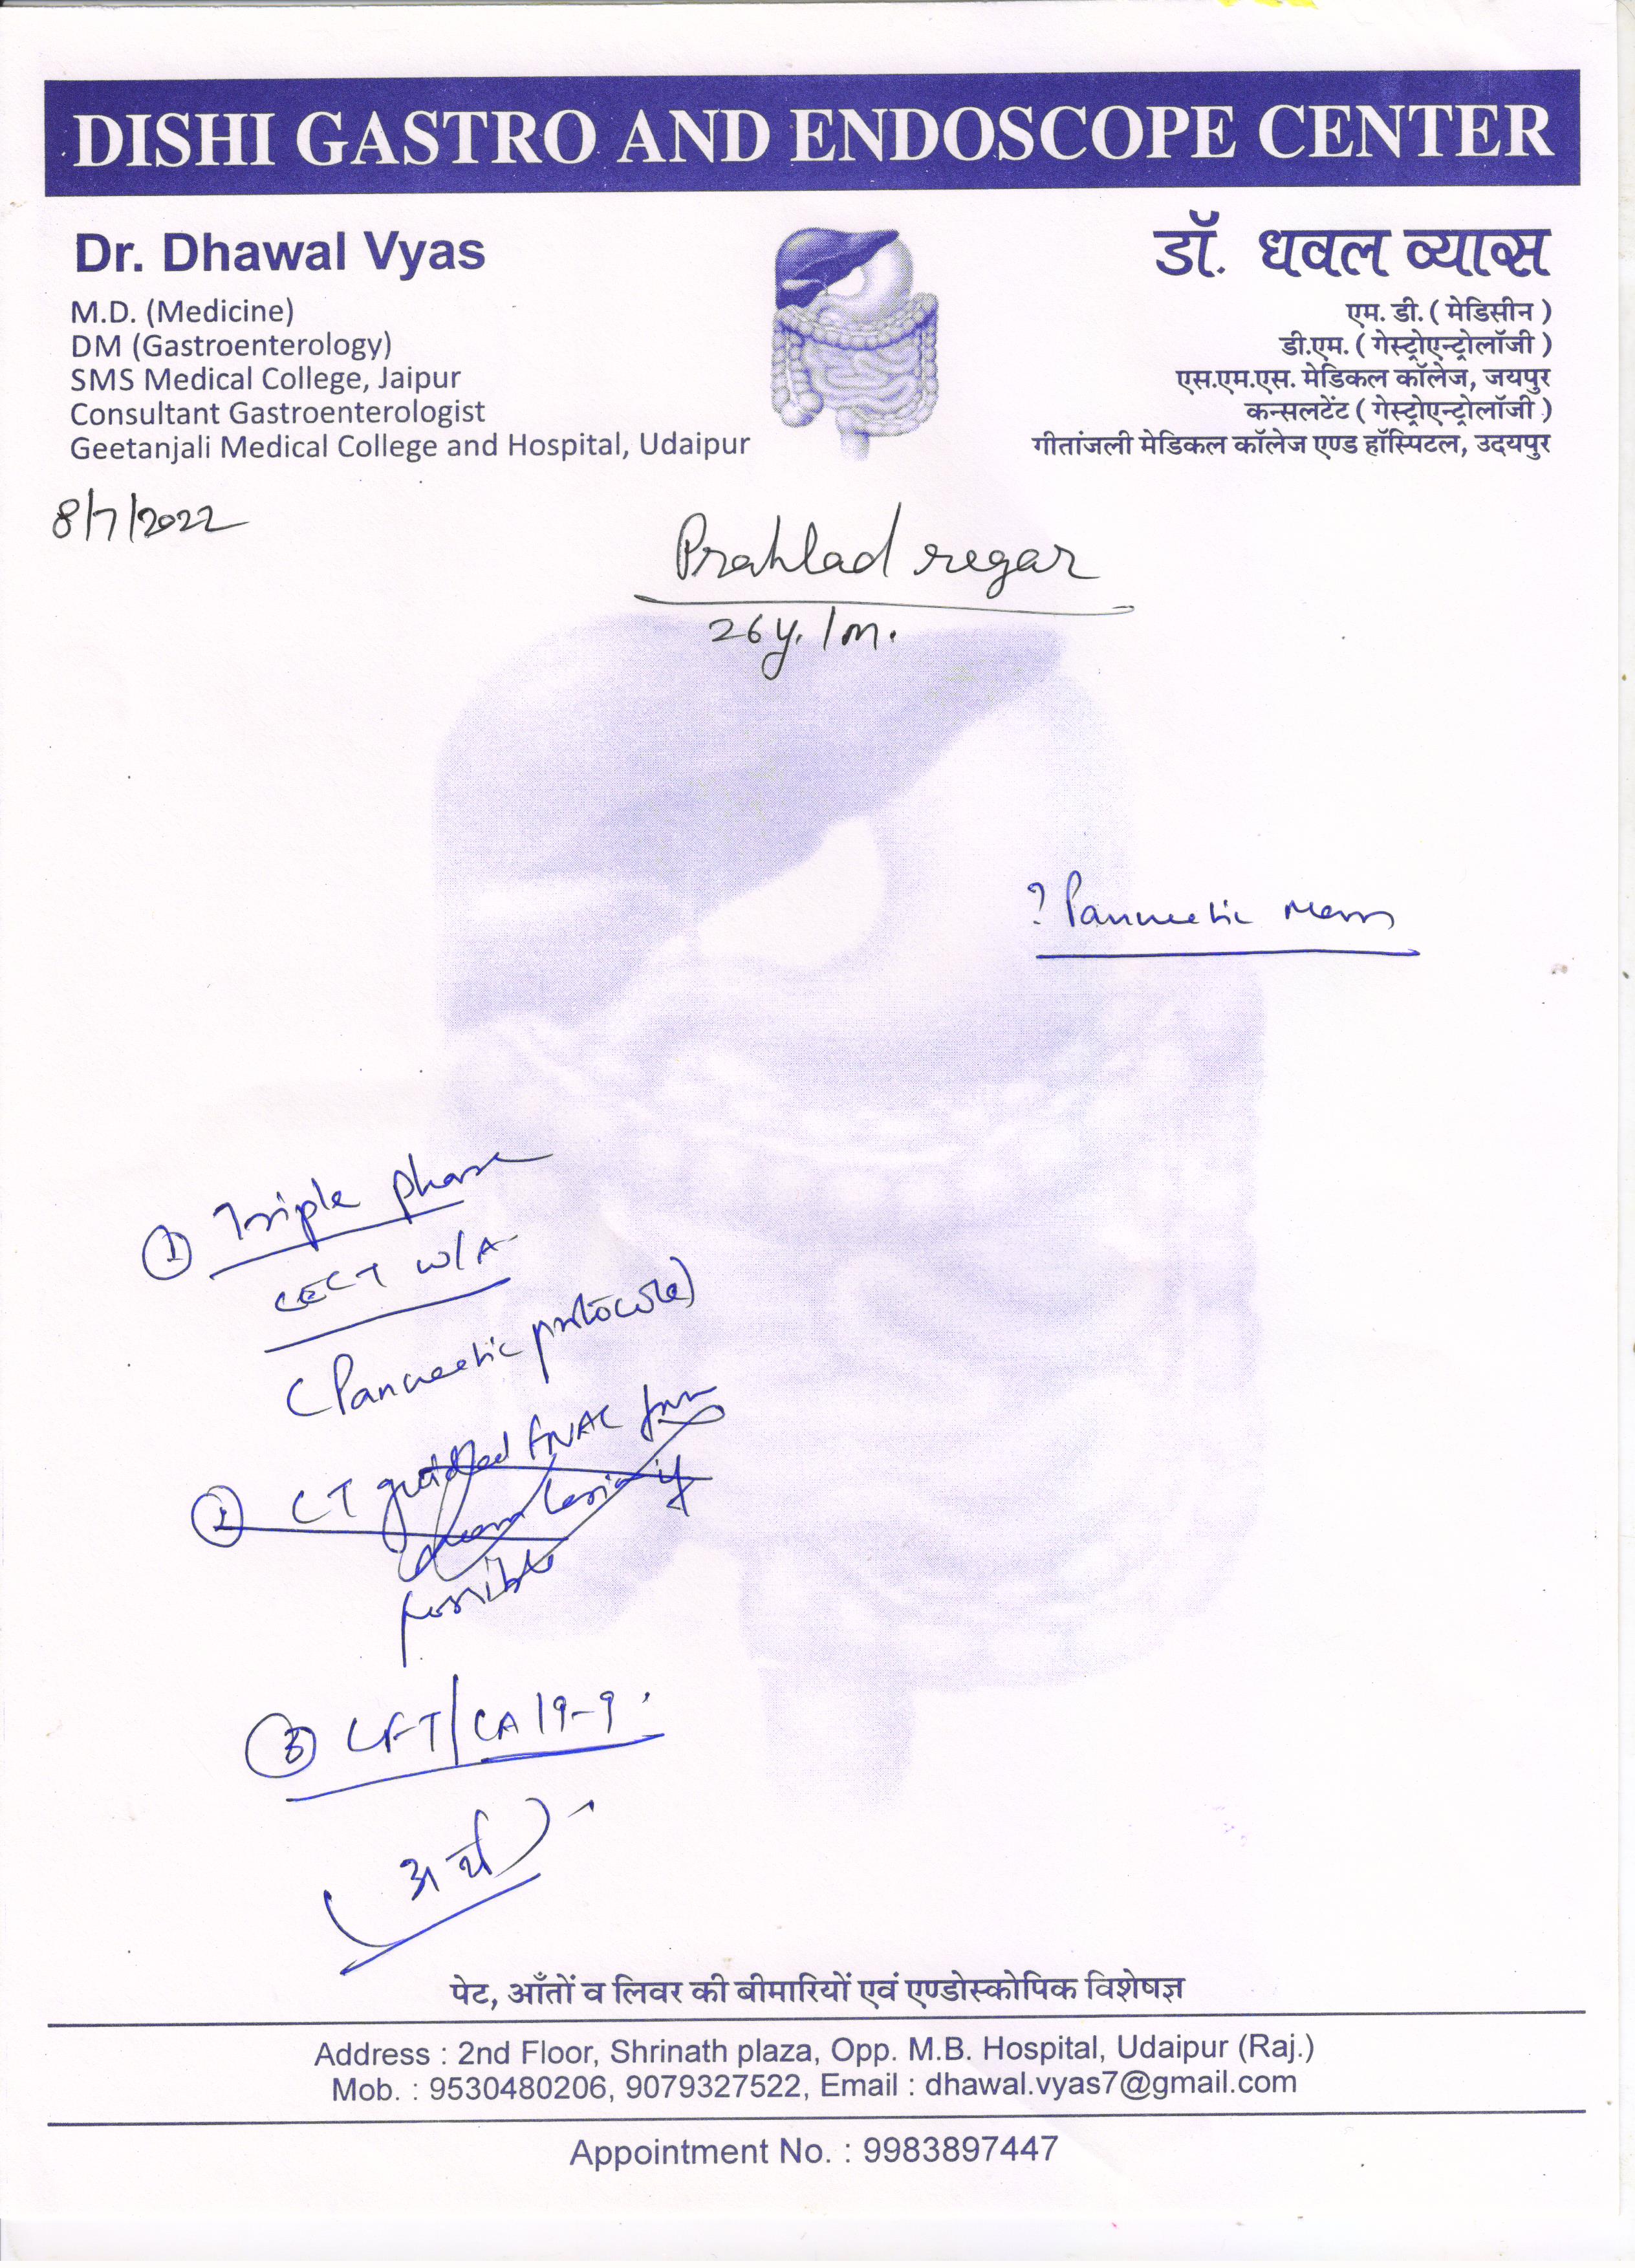 DISHI GASTRO AND ENDOSCOPE CENTER
Dr. Dhawal Vyas
M.D. (Medicine)
DM (Gastroenterology)
SMS Medical College, Jaipur
Consultant Gastroenterologist
Geetanjali Medical College and Hospital, Udaipur
डॉ. धवल व्यास
एम. डी. ( मेडिसीन )
डी.एम. ( गेस्ट्रोएन्ट्रोलॉजी )
एस.एम.एस. मेडिकल कॉलेज, जयपुर
कन्सलटेंट ( गेस्ट्रोएन्ट्रोलॉजी )
गीतांजली मेडिकल कॉलेज एण्ड हॉस्पिटल, उदयपुर
8/7/2022
Prahlad regar
26y./m.
? Pancreatic mass
① Triple phase
CECT w/A
(Pancreatic protocole)
② CT guided FNAC from
lesion if
possible
③ LFT/CA 19-9
पेट, आँतों व लिवर की बीमारियों एवं एण्डोस्कोपिक विशेषज्ञ
Address : 2nd Floor, Shrinath plaza, Opp. M.B. Hospital, Udaipur (Raj.)
Mob. : 9530480206, 9079327522, Email : dhawal.vyas7@gmail.com
Appointment No. : 9983897447